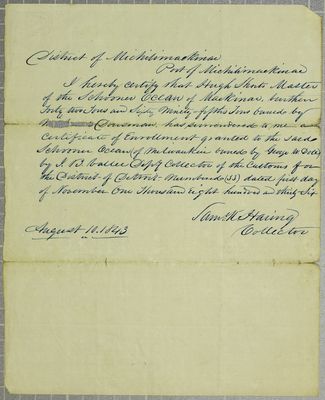 District of Michilimackinac
Port of Michilimackinac
I hereby certify that Hugh Master
of the Schooner Ocean of Mackinac, burthen
Forty two Tons and Sixty Ninety-fifths Tons owned by
has surrendered to me a
certificate of Enrollment granted to the said
Schooner Ocean of Milwaukie owned by George W. Dole
by J. B. Vallee Depty Collector of the Customs for
the District of Detroit Numbered (53) dated first day
of November One Thousand eight hundred & thirty Six
Saml. K. Haring
August 10. 1843
Collector